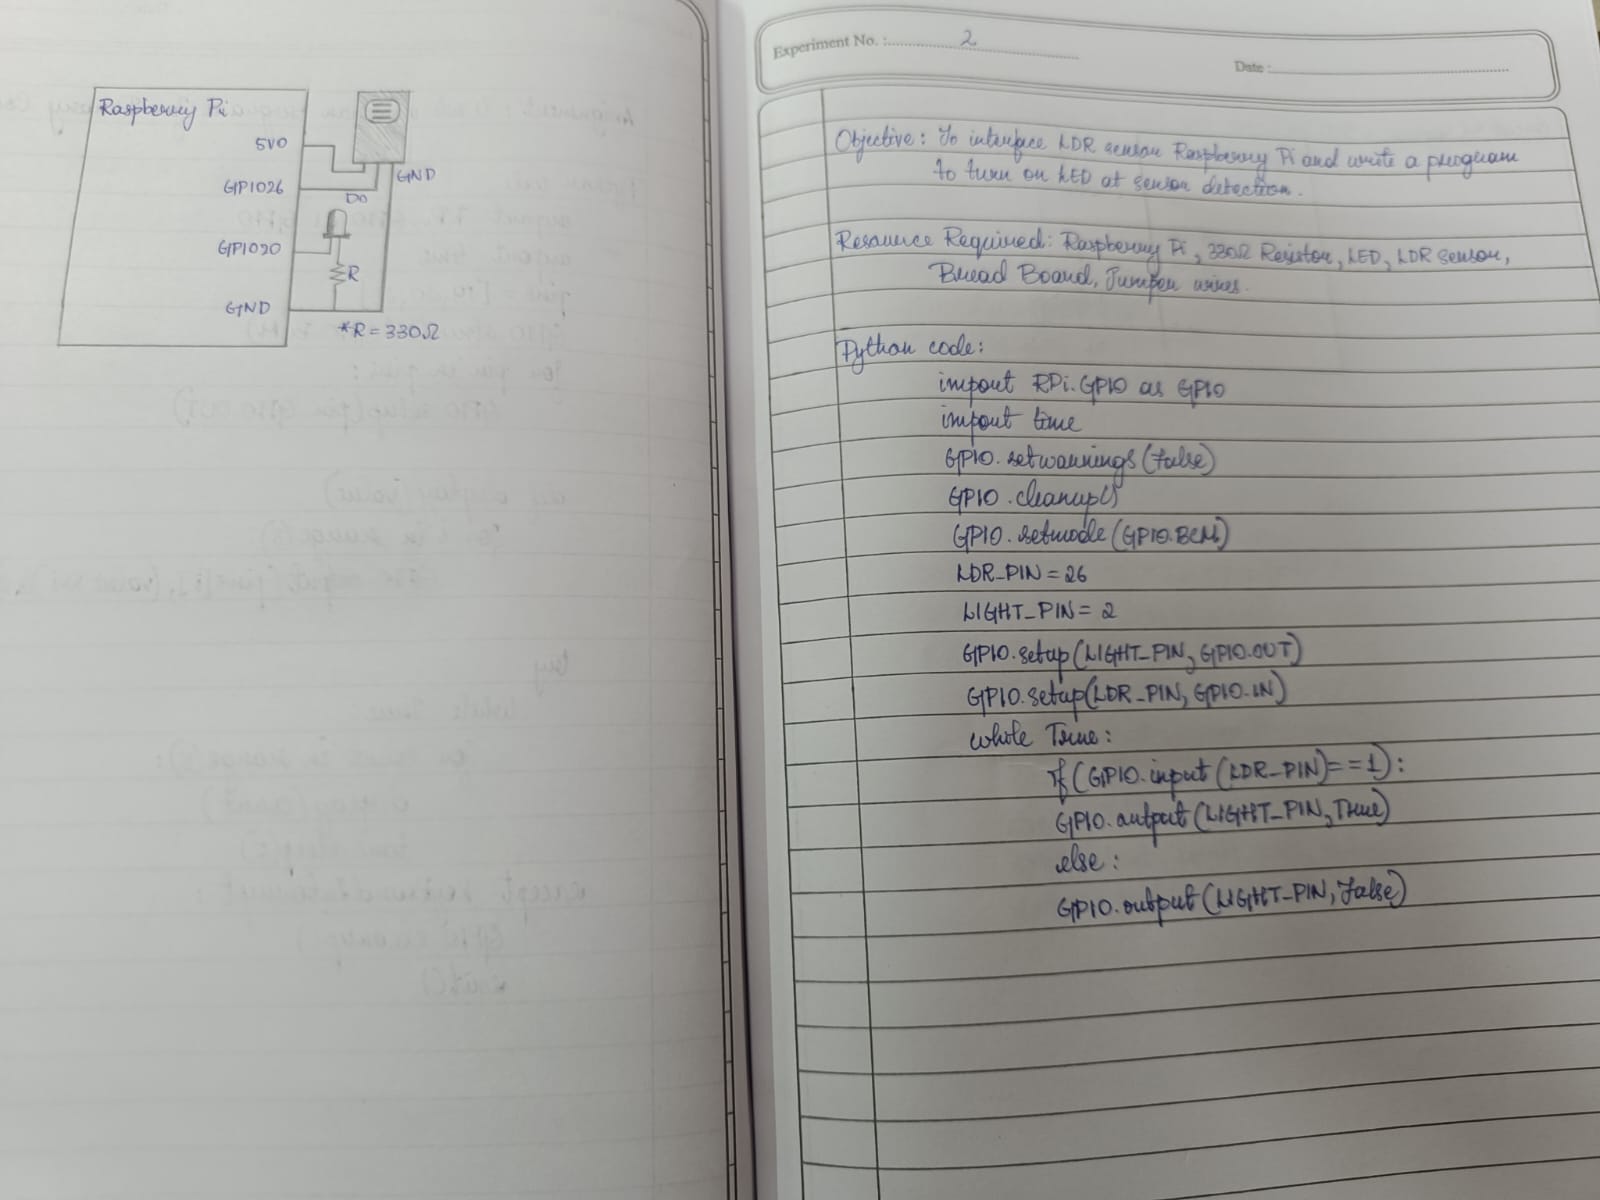 Raspberry Pi
5V0
GPIO26
GND
D0
GPIO20
R
GND
*R = 330Ω
Experiment No. : 2
Date :
Objective : To interface LDR sensor Raspberry Pi and write a program
to turn on LED at sensor detection.
Resource Required: Raspberry Pi, 330Ω Resistor, LED, LDR sensor,
Bread Board, Jumper wires.
Python code:
import RPi.GPIO as GPIO
import time
GPIO.setwarnings(False)
GPIO.cleanup()
GPIO.setmode(GPIO.BCM)
LDR_PIN = 26
LIGHT_PIN = 2
GPIO.setup(LIGHT_PIN, GPIO.OUT)
GPIO.setup(LDR_PIN, GPIO.IN)
while True:
if (GPIO.input(LDR_PIN)==1):
GPIO.output(LIGHT_PIN, True)
else:
GPIO.output(LIGHT_PIN, False)